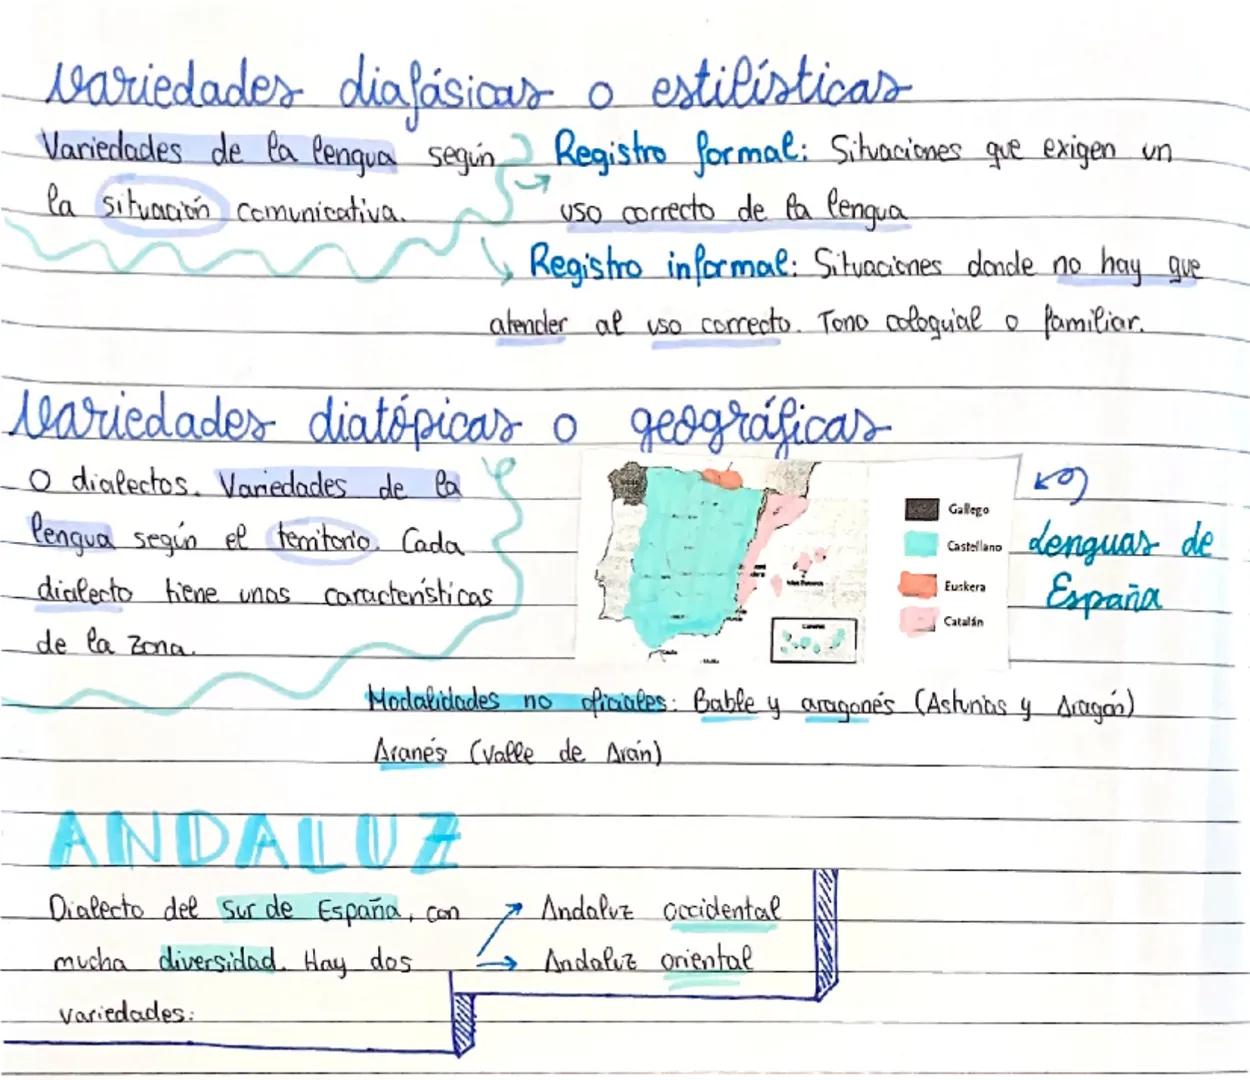 Variedades diafásicas o estilísticas
Variedades de la lengua según
la situación comunicativa.
Registro formal: Situaciones que exigen un
uso correcto de la lengua
Registro informal: Situaciones donde no hay que
atender al uso correcto. Tono coloquial o familiar.
Variedades diatópicas o geográficas
O dialectos. Variedades de la
lengua según el territorio. Cada
dialecto tiene unas características
de la zona.
Gallego
Castellano
Euskera
Catalán
Lenguas de
España
Modalidades no oficiales: Bable y aragonés (Asturias y Aragón)
Aranés (Valle de Arán)
ANDALUZ
Dialecto del Sur de España, con
mucha diversidad. Hay dos
variedades:
Andaluz occidental
Andaluz oriental